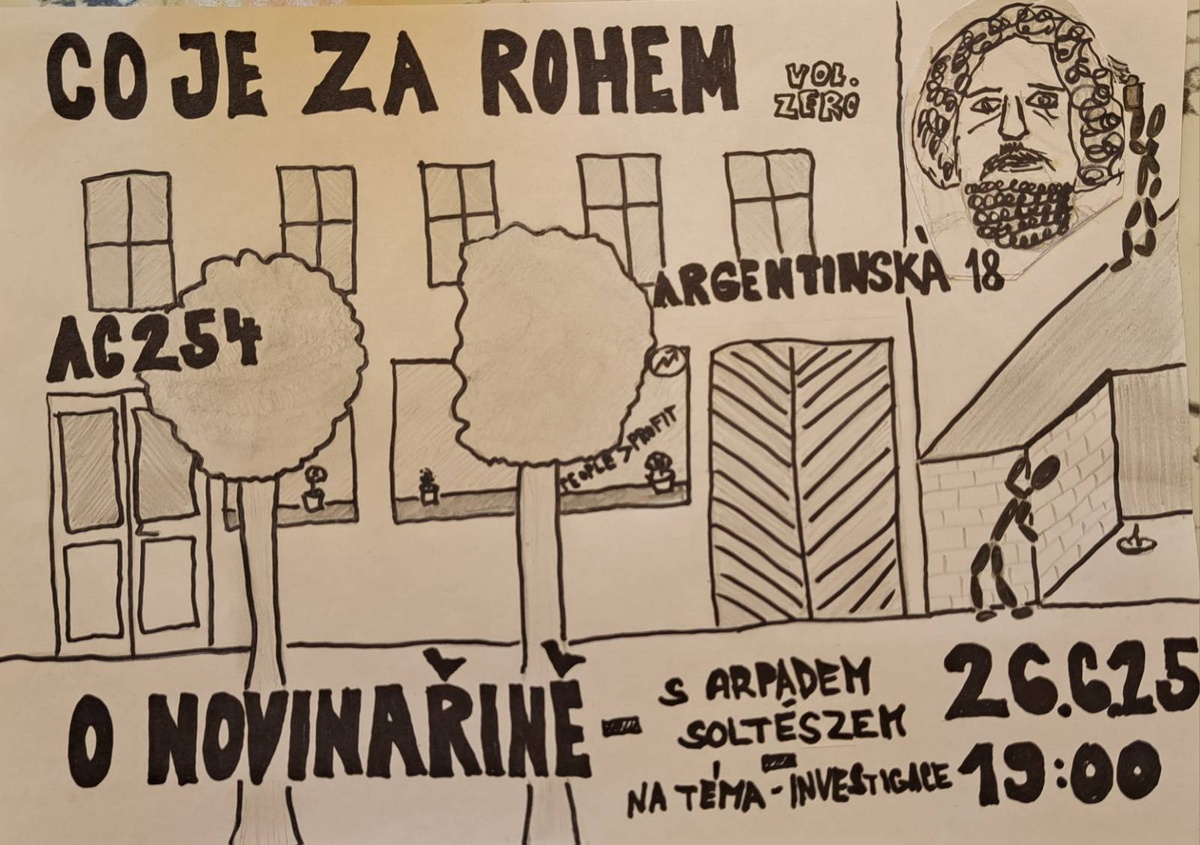 CO JE ZA ROHEM
VOL.
ZERO
ARGENTINSKÁ 18
AC254
PEOPLE > PROFIT
O NOVINAŘINĚ -
S ARPÁDEM
SOLTÉSZEM
-
NA TÉMA - INVESTIGACE
26.6.25
19:00